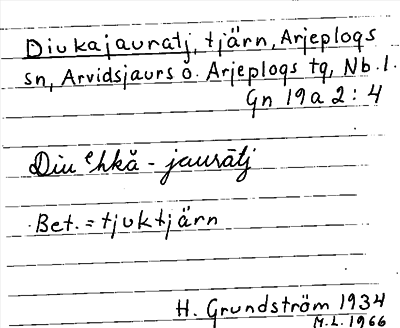 Diukajauratj, tjärn, Arjeplogs
sn, Arvidsjaurs o. Arjeplogs tg, Nb. l.
Gn 19a 2:4
Diuᵉhkă - jaurātj
Bet. = tjuktjärn
H. Grundström 1934
M.L. 1966